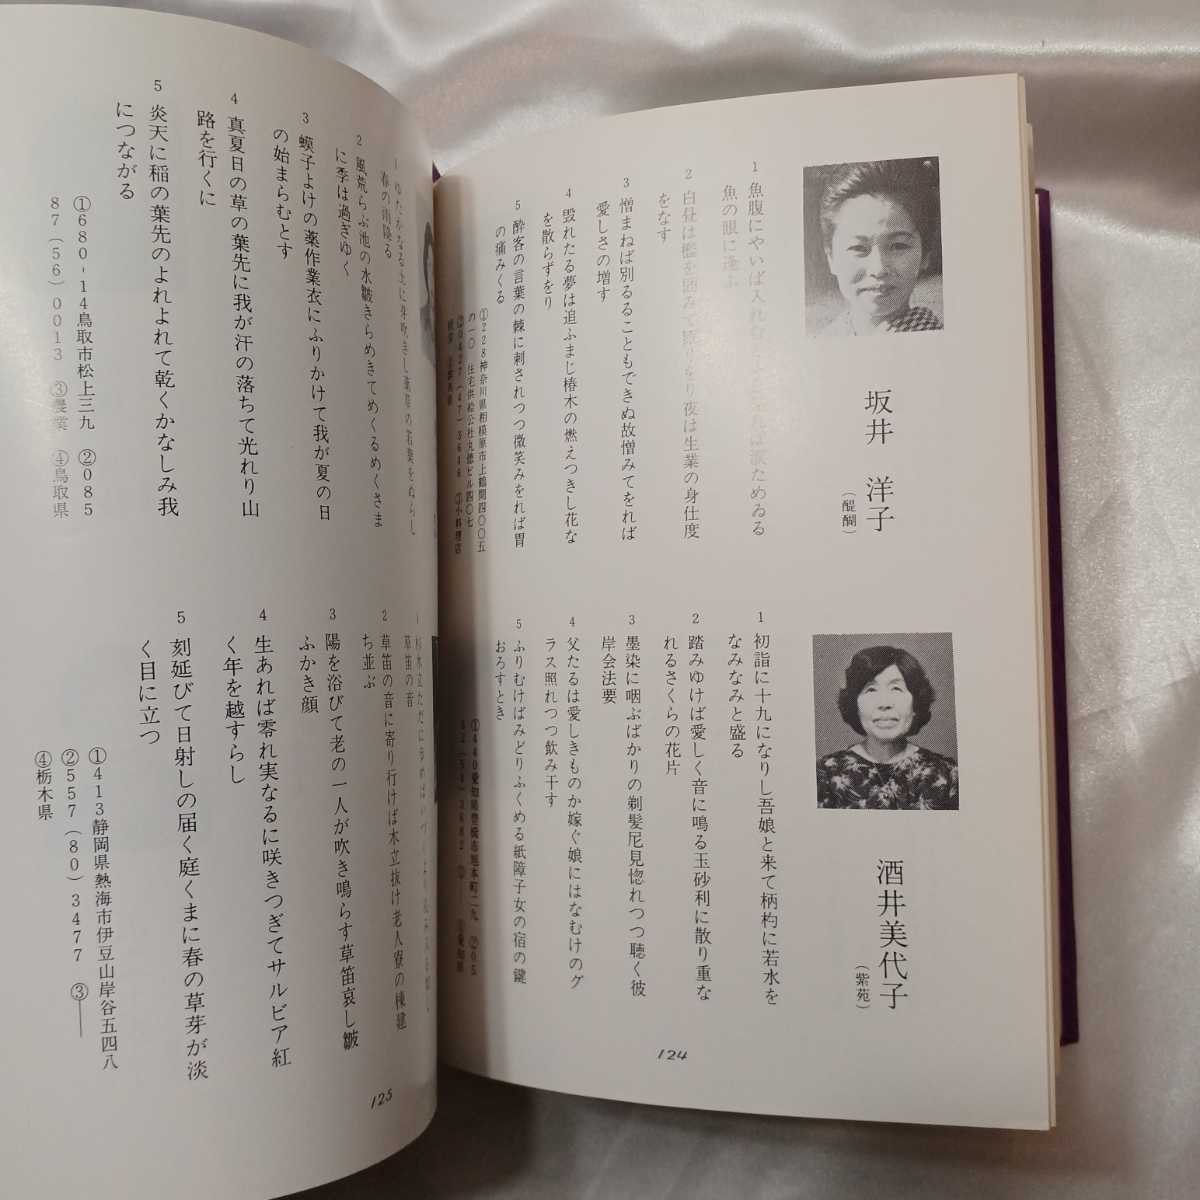 坂井 洋子
（醍醐）
1 魚腹にやいば入れ
ためゐる
魚の眼に逢ふ
2 白昼は檻を囲みて
り夜は生業の身仕度
をなす
3 憎まねば別るることもできぬ故憎みてをれば
愛しさの増す
4 毀れたる夢は追ふまじ椿木の燃えつきし花な
を散らずをり
5 酔客の言葉の棘に刺されつつ微笑みをれば胃
の痛みくる
①228神奈川県相模原市上鶴間四〇〇五
の一〇 住宅供給公社丸徳ビル四〇七
②0427(47)3646 ③小料理店
酒井美代子
（紫苑）
1 初詣に十九になりし吾娘と来て柄杓に若水を
なみなみと盛る
2 踏みゆけば愛しく音に鳴る玉砂利に散り重な
れるさくらの花片
3 墨染に咽ぶばかりの剃髪尼見惚れつつ聴く彼
岸会法要
4 父たるは愛しきものか嫁ぐ娘にはなむけのグ
ラス照れつつ飲み干す
5 ふりむけばみどりふくめる紙障子女の宿の鍵
おろすとき
①440愛知県豊橋市旭本町二九 ②05
32(54)3682 ③― ④愛知県
124
1 ゆたかなる土に芽吹きし
の若葉をぬらし
春の雨降る
2 風荒らぶ池の水皺きらめきてめくるめくさま
に季は過ぎゆく
3 蟆子よけの薬作業衣にふりかけて我が夏の日
の始まらむとす
4 真夏日の草の葉先に我が汗の落ちて光れり山
路を行くに
5 炎天に稲の葉先のよれよれて乾くかなしみ我
につながる
①680-14鳥取市松上三九 ②085
87(56)0013 ③農業 ④鳥取県
草笛の音
2 草笛の音に寄り行けば木立抜け老人寮の棟建
ち並ぶ
3 陽を浴びて老の一人が吹き鳴らす草笛哀し皺
ふかき顔
4 生あれば零れ実なるに咲きつぎてサルビア紅
く年を越すらし
5 刻延びて日射しの届く庭くまに春の草芽が淡
く目に立つ
①413静岡県熱海市伊豆山岸谷五四八
②557(80)3477 ③――
④栃木県
125